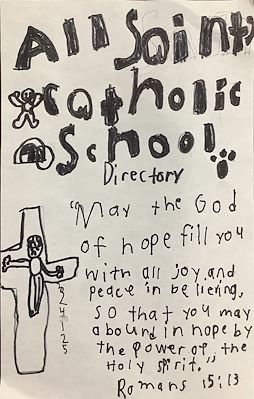 All Saints
Catholic
School
Directory
"May the God
of hope fill you
with all joy and
peace in believing,
so that you may
abound in hope by
the power of the
Holy spirit."
Romans 15:13
8/24/25